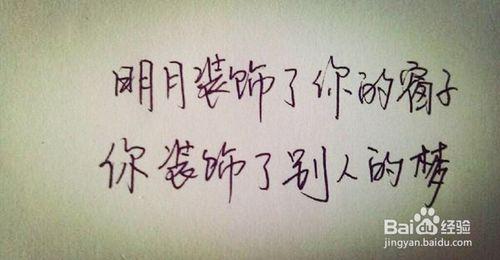 明月装饰了你的窗子
你装饰了别人的梦
Baidu经验
jingyan.baidu.com